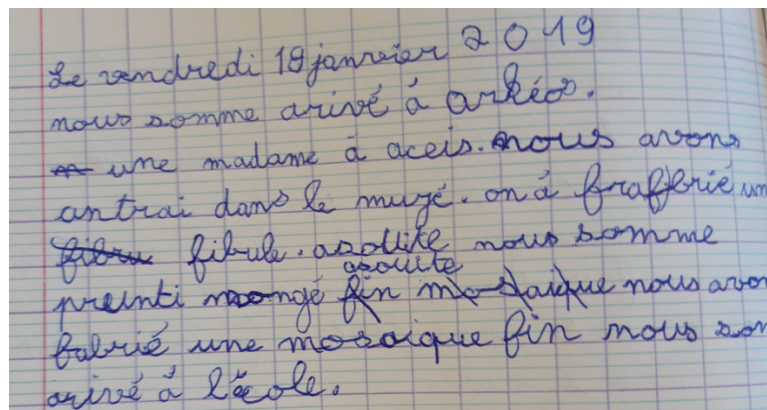 Le vendredi 18 janvier 2019
nous somme arivé à arkéos.
une madame à aceis. nous avons
antrai dans le muzé. on á frafbrié un
fibule. asouite nous somme
asouite
preunti mongé fin mosaique nous avon
fabrié une mosaique fin nous son
arivé à l'école.